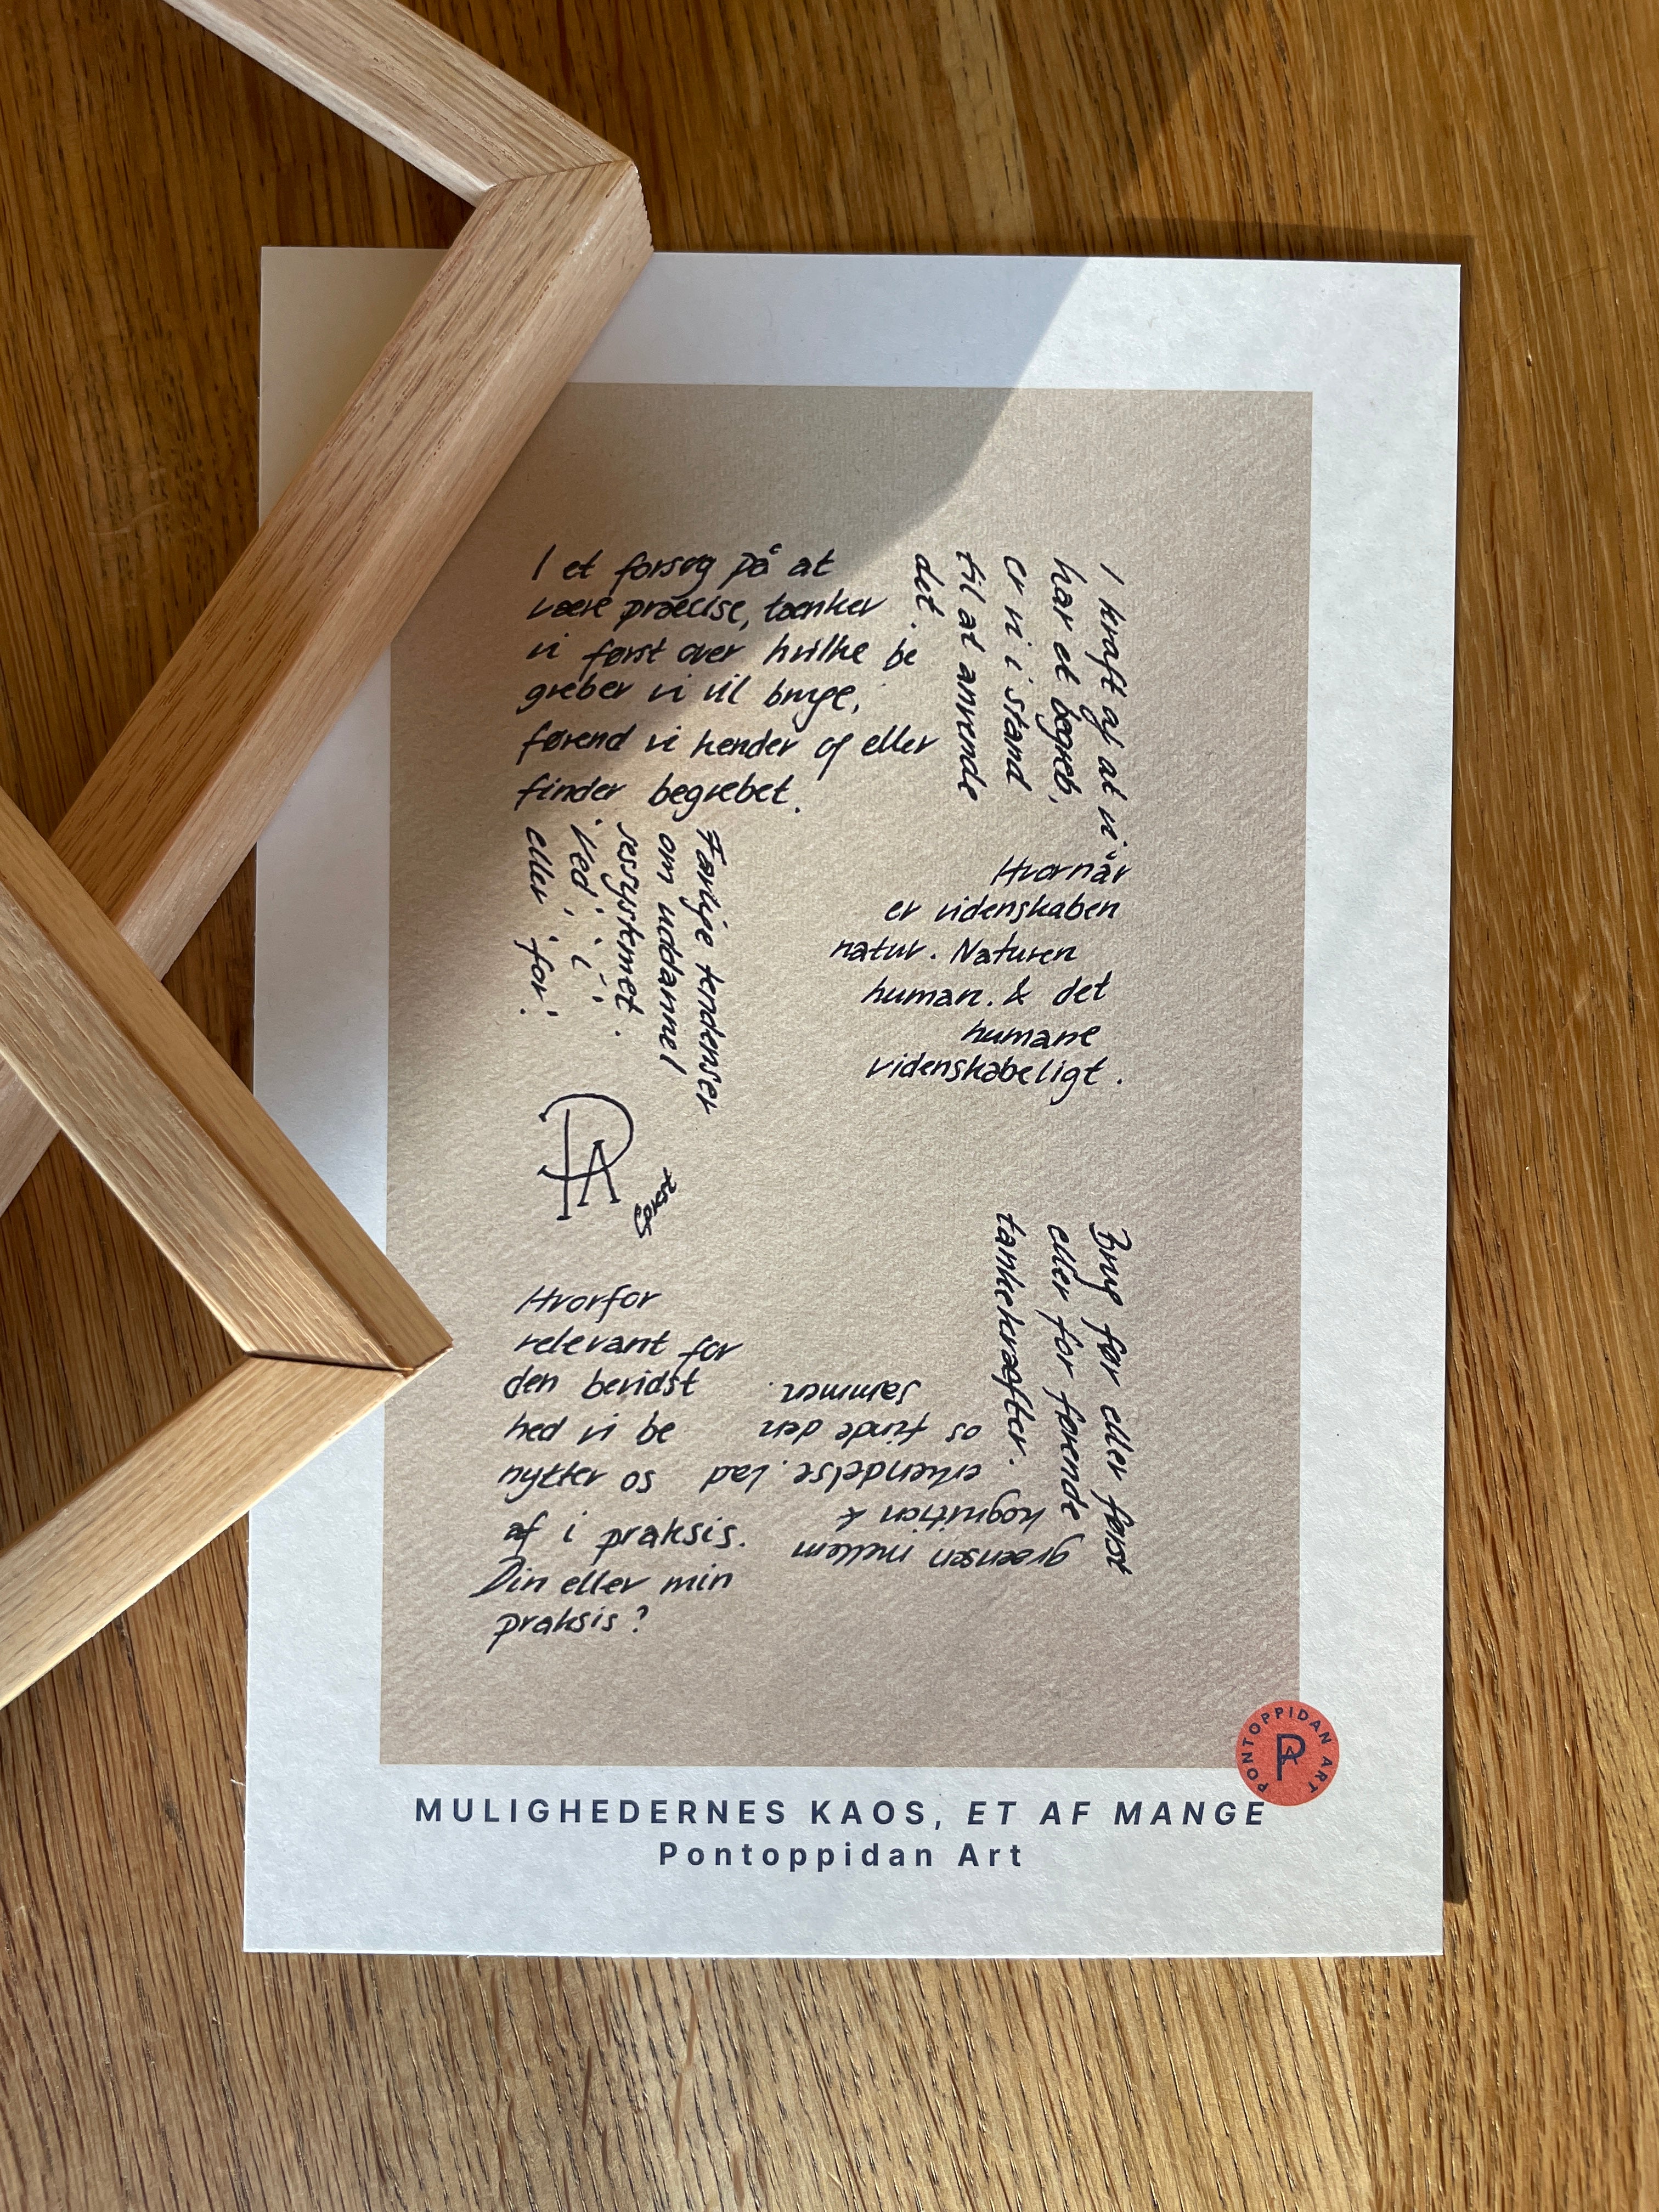 I et forsøg på at
være præcise, tænker
vi først over hvilke be
greber vi vil bruge,
førend vi kender og eller
finder begrebet.
I kraft af at vi
har et begreb,
er vi i stand
til at anvende
det.
Færlige tendenser
om uddannel
sessystemet.
'Ved', 'i',
eller 'for'.
Hvornår
er videnskaben
natur. Naturen
human. & det
humane
videnskabeligt.
PA
Hvorfor
relevant for
den bevidst
hed vi be
nytter os
af i praksis.
Din eller min
praksis?
Brug før eller først
eller for førende
tankekræfter.
grænsen mellem
kognition &
erkendelse. Lad
os finde den
sammen.
MULIGHEDERNES KAOS, ET AF MANGE
Pontoppidan Art
PONTOPPIDAN ART
PA